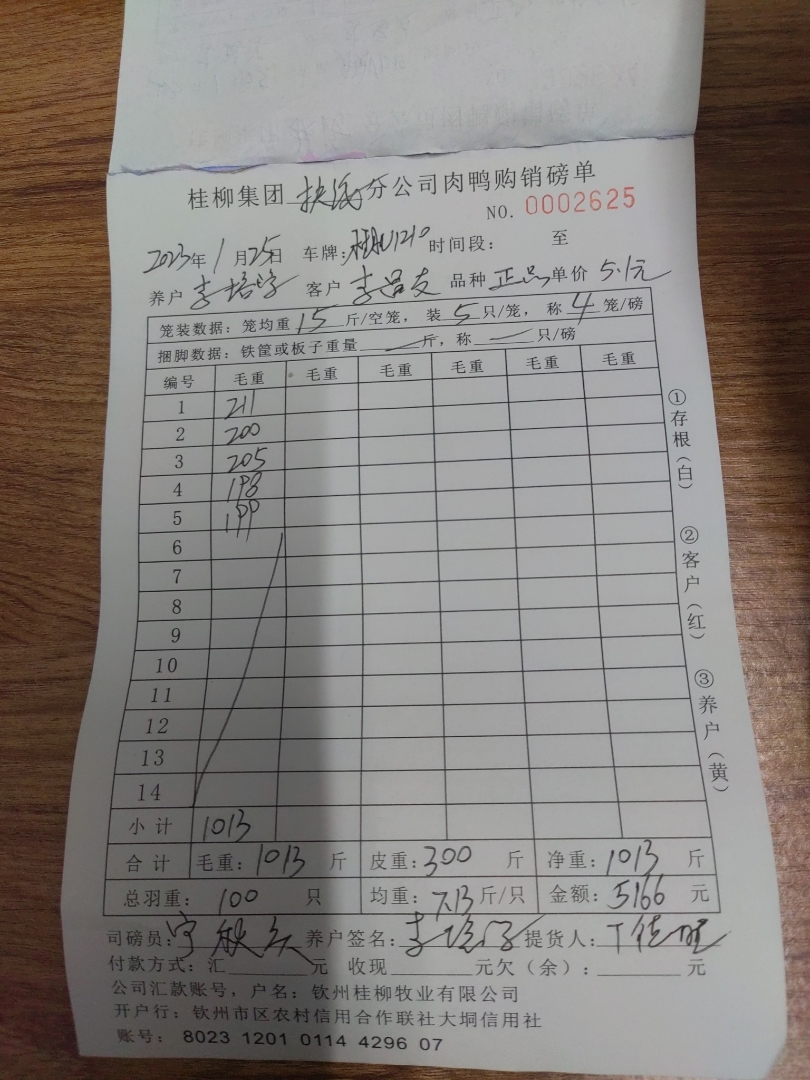 桂柳集团 扶绥 分公司肉鸭购销磅单
NO. 0002625
2023年1月25日 车牌: 时间段: 至
养户 李培 客户 李品友 品种 正品 单价 5.1元
笼装数据: 笼均重 15 斤/空笼, 装 5 只/笼, 称 4 笼/磅
捆脚数据: 铁筐或板子重量 — 斤, 称 — 只/磅
编号 毛重 毛重 毛重 毛重 毛重 毛重
1 211
2 200
3 205
4 198
5 199
6
7
8
9
10
11
12
13
14
小计 1013
合计 毛重: 1013 斤 皮重: 300 斤 净重: 1013 斤
总羽重: 100 只 均重: 7.13 斤/只 金额: 5166 元
司磅员: 养户签名: 李 提货人:
付款方式: 汇 元 收现 元欠(余): 元
公司汇款账号, 户名: 钦州桂柳牧业有限公司
开户行: 钦州市区农村信用合作联社大垌信用社
账号: 8023 1201 0114 4296 07
①存根(白)
②客户(红)
③养户(黄)